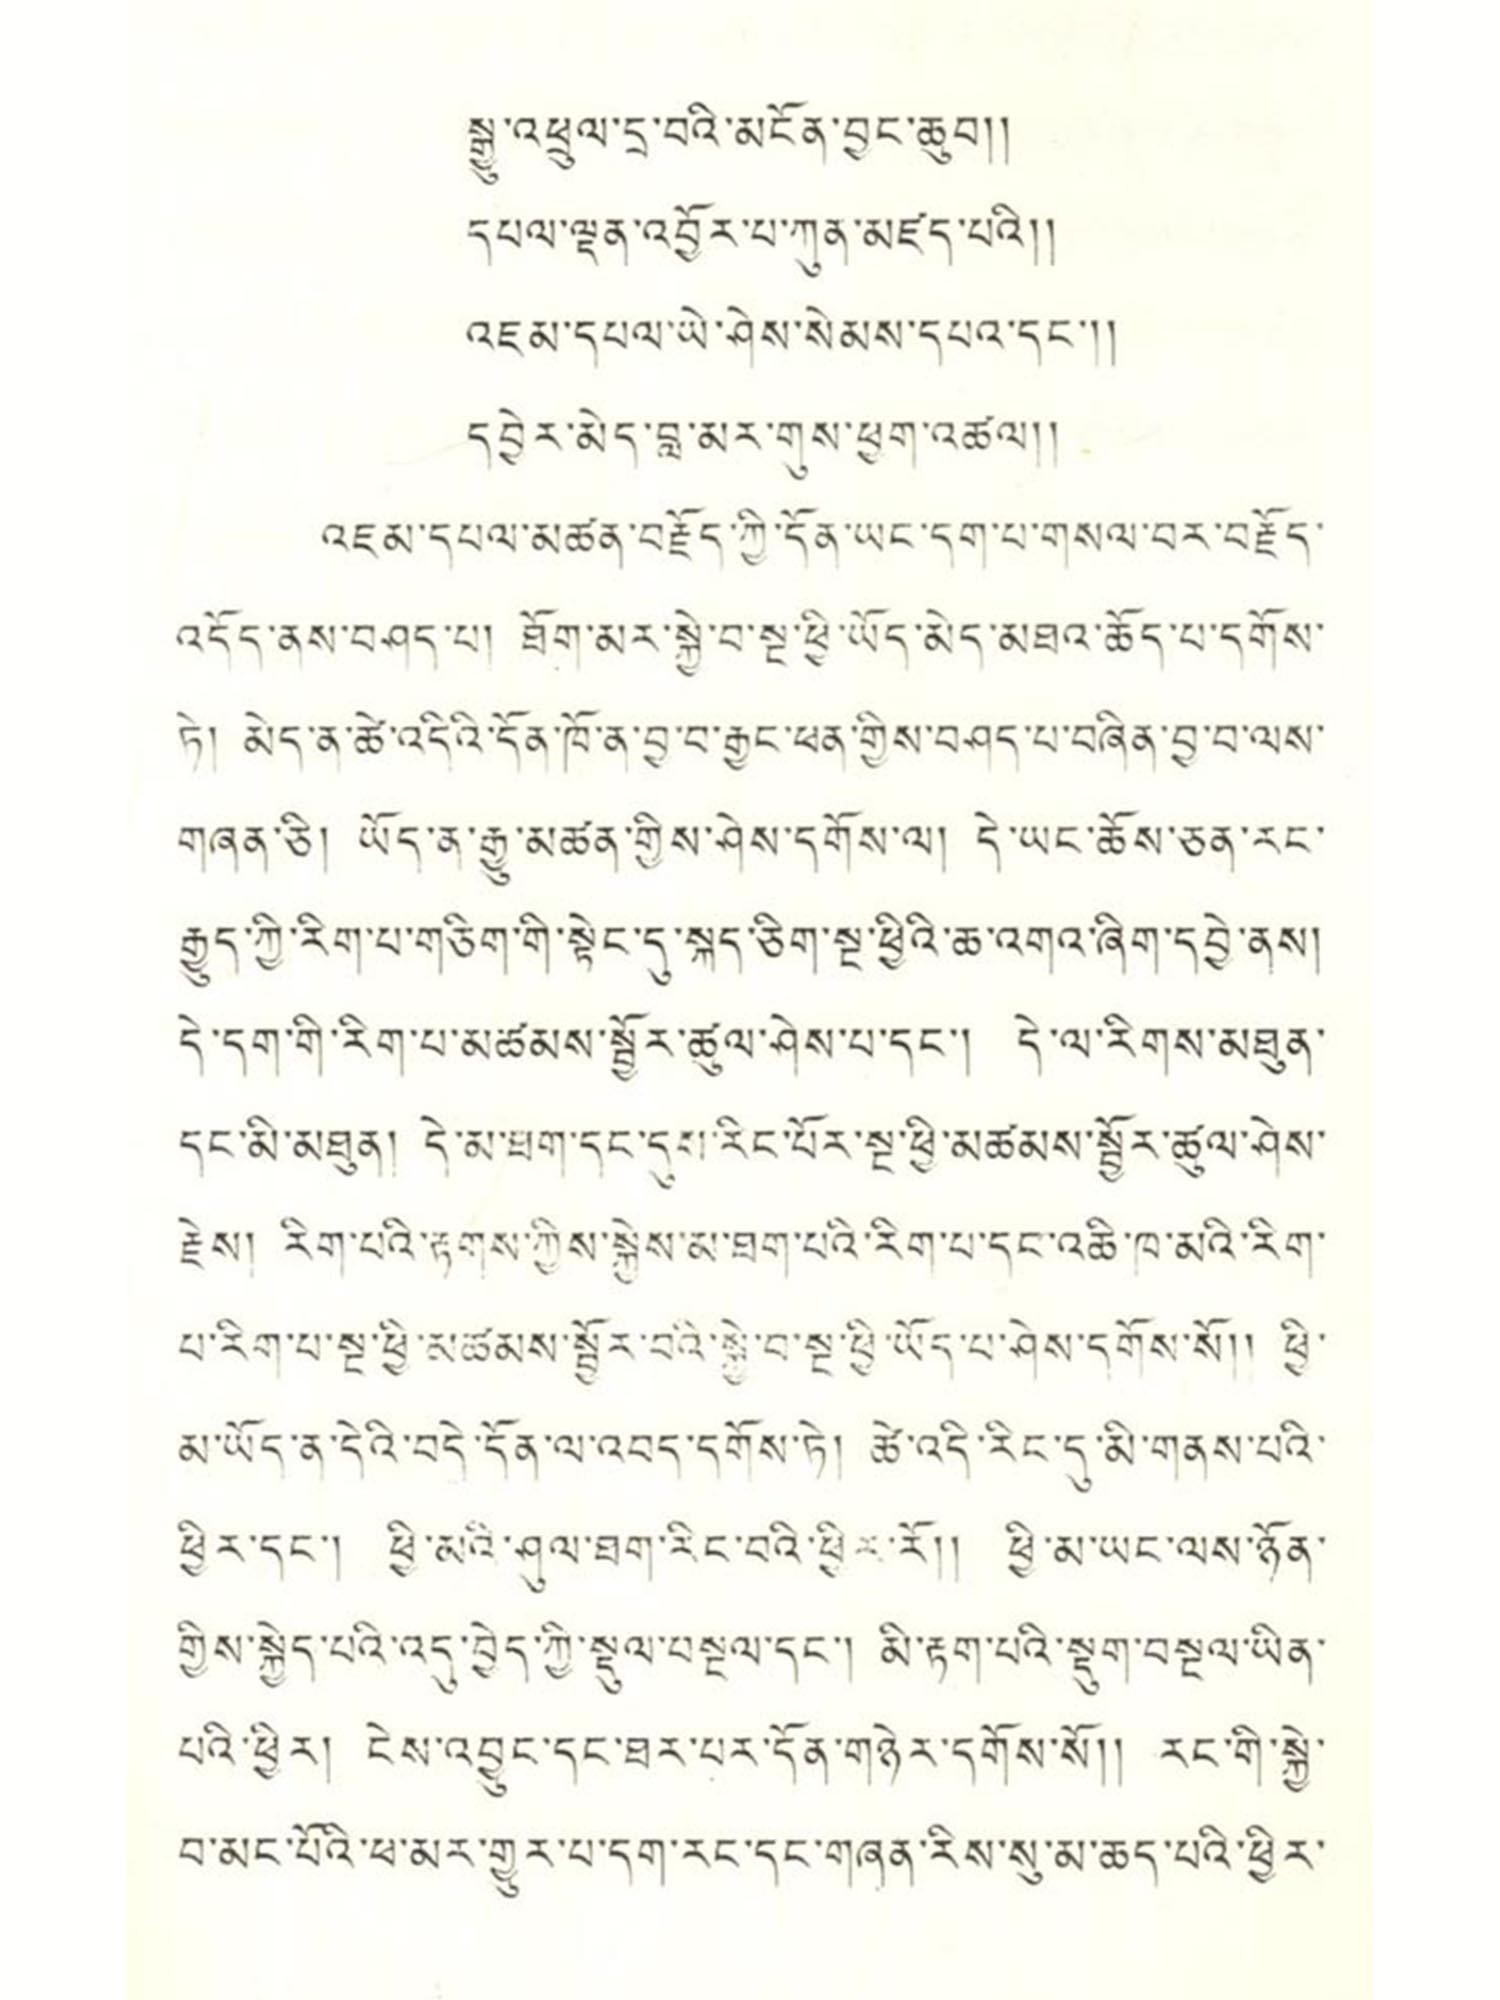 སྒྱུ་འཕྲུལ་དྲ་བའི་མངོན་བྱང་ཆུབ།།
དཔལ་ལྡན་འབྱོར་པ་ཀུན་མཛད་པའི།།
འཇམ་དཔལ་ཡེ་ཤེས་སེམས་དཔའ་དང་།།
དབྱེར་མེད་བླ་མར་གུས་ཕྱག་འཚལ།།
འཇམ་དཔལ་མཚན་བརྗོད་ཀྱི་དོན་ཡང་དག་པ་གསལ་བར་བརྗོད་
འདོད་ནས་བཤད་པ། ཐོག་མར་སྐྱེ་བ་སྔ་ཕྱི་ཡོད་མེད་མཐའ་ཆོད་པ་དགོས་
ཏེ། མེད་ན་ཚེ་འདིའི་དོན་ཁོ་ན་བྱ་བ་རྒྱང་ཕན་གྱིས་བཤད་པ་བཞིན་བྱ་བ་ལས་
གཞན་ཅི། ཡོད་ན་རྒྱུ་མཚན་གྱིས་ཤེས་དགོས་ལ། དེ་ཡང་ཆོས་ཅན་རང་
རྒྱུད་ཀྱི་རིག་པ་གཅིག་གི་སྟེང་དུ་སྐད་ཅིག་སྔ་ཕྱིའི་ཆ་འགའ་ཞིག་དབྱེ་ནས།
དེ་དག་གི་རིག་པ་མཚམས་སྦྱོར་ཚུལ་ཤེས་པ་དང་། དེ་ལ་རིགས་མཐུན་
དང་མི་མཐུན། དེ་མ་ཐག་དང་དུས་རིང་པོར་སྔ་ཕྱི་མཚམས་སྦྱོར་ཚུལ་ཤེས་
རྗེས། རིག་པའི་རྟགས་ཀྱིས་སྐྱེས་མ་ཐག་པའི་རིག་པ་དང་འཆི་ཁ་མའི་རིག་
པ་རིག་པ་སྔ་ཕྱི་མཚམས་སྦྱོར་བའི་སྐྱེ་བ་སྔ་ཕྱི་ཡོད་པ་ཤེས་དགོས་སོ།། ཕྱི་
མ་ཡོད་ན་དེའི་བདེ་དོན་ལ་འབད་དགོས་ཏེ། ཚེ་འདི་རིང་དུ་མི་གནས་པའི་
ཕྱིར་དང་། ཕྱི་མའི་ཤུལ་ཐག་རིང་བའི་ཕྱིར་རོ།། ཕྱི་མ་ཡང་ལས་ཉོན་
གྱིས་སྐྱེད་པའི་འདུ་བྱེད་ཀྱི་སྡུལ་པསྔལ་དང་། མི་རྟག་པའི་སྡུག་བསྔལ་ཡིན་
པའི་ཕྱིར། ངེས་འབྱུང་དང་ཐར་པར་དོན་གཉེར་དགོས་སོ།། རང་གི་སྐྱེ་
བ་མང་པོའི་ཕ་མར་གྱུར་པ་དག་རང་དང་གཞན་རིས་སུ་མ་ཆད་པའི་ཕྱིར་